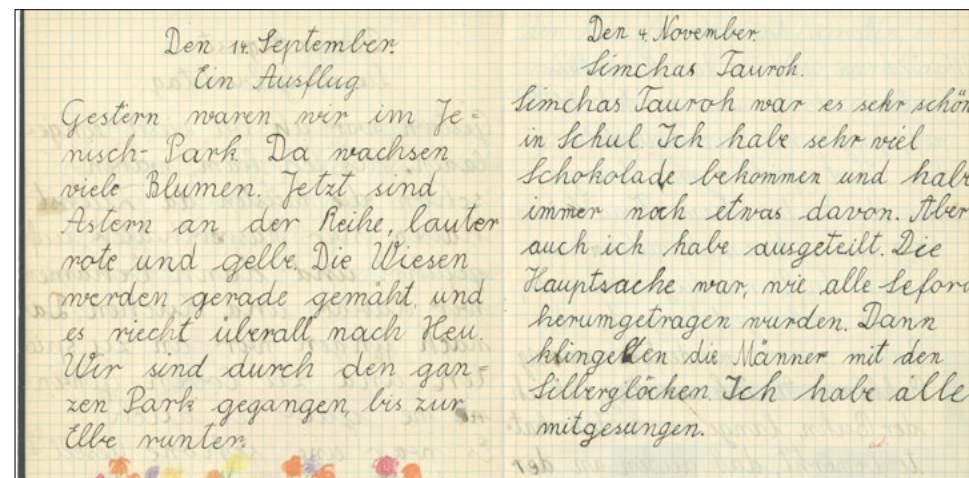 Den 14. September.
Ein Ausflug.
Gestern waren wir im Je-
nisch-Park. Da wachsen
viele Blumen. Jetzt sind
Astern an der Reihe, lauter
rote und gelbe. Die Wiesen
werden gerade gemäht, und
es riecht uberall nach Heu.
Wir sind durch den gan-
zen Park gegangen, bis zur
Elbe runter.
Den 4. November.
Simchas Tauroh.
Simchas Tauroh war es sehr schön
in Schul. Ich habe sehr viel
Schokolade bekommen und habe
immer noch etwas davon. Aber
auch ich habe ausgeteilt. Die
Hauptsache war, wie alle Seforo
herumgetragen wurden. Dann
klingelten die Männer mit den
Silberglöcken. Ich habe alle
mitgesungen.